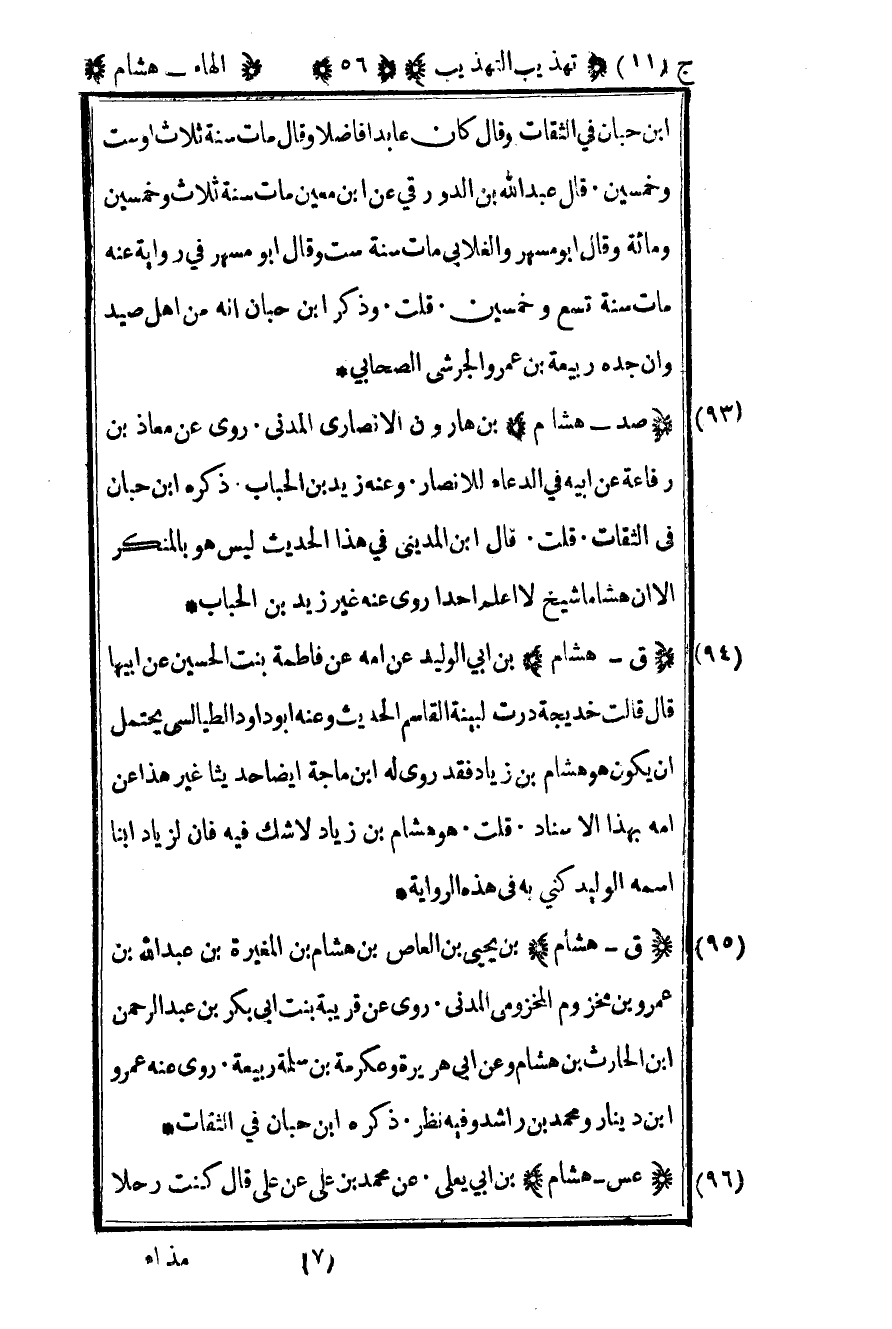 ج (١١) ﴿ تهذيب التهذيب ﴾ ﴿ ٥٦ ﴾ ﴿ الهاء ـ هشام ﴾
ابن حبان في الثقات وقال كان عابدا فاضلا وقال مات سنة ثلاث اوست
وخمسين · قال عبدالله بن الدورقي عن ابن معين مات سنة ثلاث وخمسين
ومائة وقال ابو مسهر والغلابي مات سنة ست وقال ابو مسهر في رواية عنه
مات سنة تسع وخمسين · قلت · وذكر ابن حبان انه من اهل صيد
وان جده ربيعة بن عمرو الجرشي الصحابي *
(٩٣) ﴿ صد ـ هشام ﴾ بن هارون الانصارى المدنى · روى عن معاذ بن
رفاعة عن ابيه في الدعاء للانصار · وعنه زيد بن الحباب · ذكره ابن حبان
فى الثقات · قلت · قال ابن المدينى في هذا الحديث ليس هو بالمنكر
الاان هشاما شيخ لا اعلم احدا روى عنه غير زيد بن الحباب *
(٩٤) ﴿ ق ـ هشام ﴾ بن ابي الوليد عن امه عن فاطمة بنت الحسين عن ابيها
قال قالت خديجة درت لبينة القاسم الحديث وعنه ابو داود الطيالسى يحتمل
ان يكون هو هشام بن زياد فقد روى له ابن ماجة ايضا حديثا غير هذا عن
امه بهذا الاسناد · قلت · هو هشام بن زياد لاشك فيه فان لزياد ابنا
اسمه الوليد كني به فى هذه الرواية *
(٩٥) ﴿ ق ـ هشام ﴾ بن يحيى بن العاص بن هشام بن المغيرة بن عبدالله بن
عمرو بن مخزوم المخزومى المدنى · روى عن قريبة بنت ابى بكر بن عبدالرحمن
ابن الحارث بن هشام وعن ابي هريرة وعكرمة بن سلمة ربيعة · روى عنه عمرو
ابن دينار ومحمد بن راشد وفيه نظر · ذكره ابن حبان في الثقات *
(٩٦) ﴿ عس ـ هشام ﴾ بن ابي يعلى · عن محمد بن على عن على قال كنت رجلا
(٧) مذاء